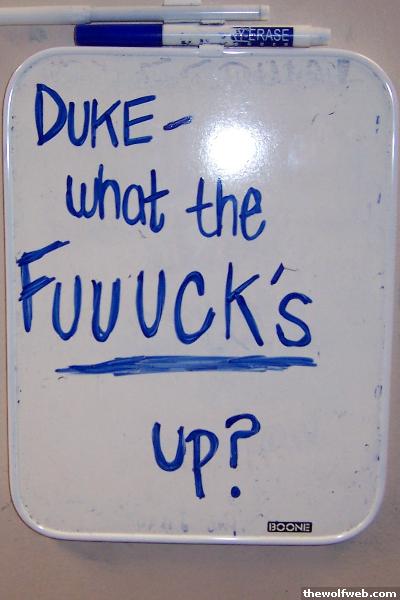 RY ERASE
DUKE-
what the
FUUUCK's
up?
BOONE
thewolfweb.com